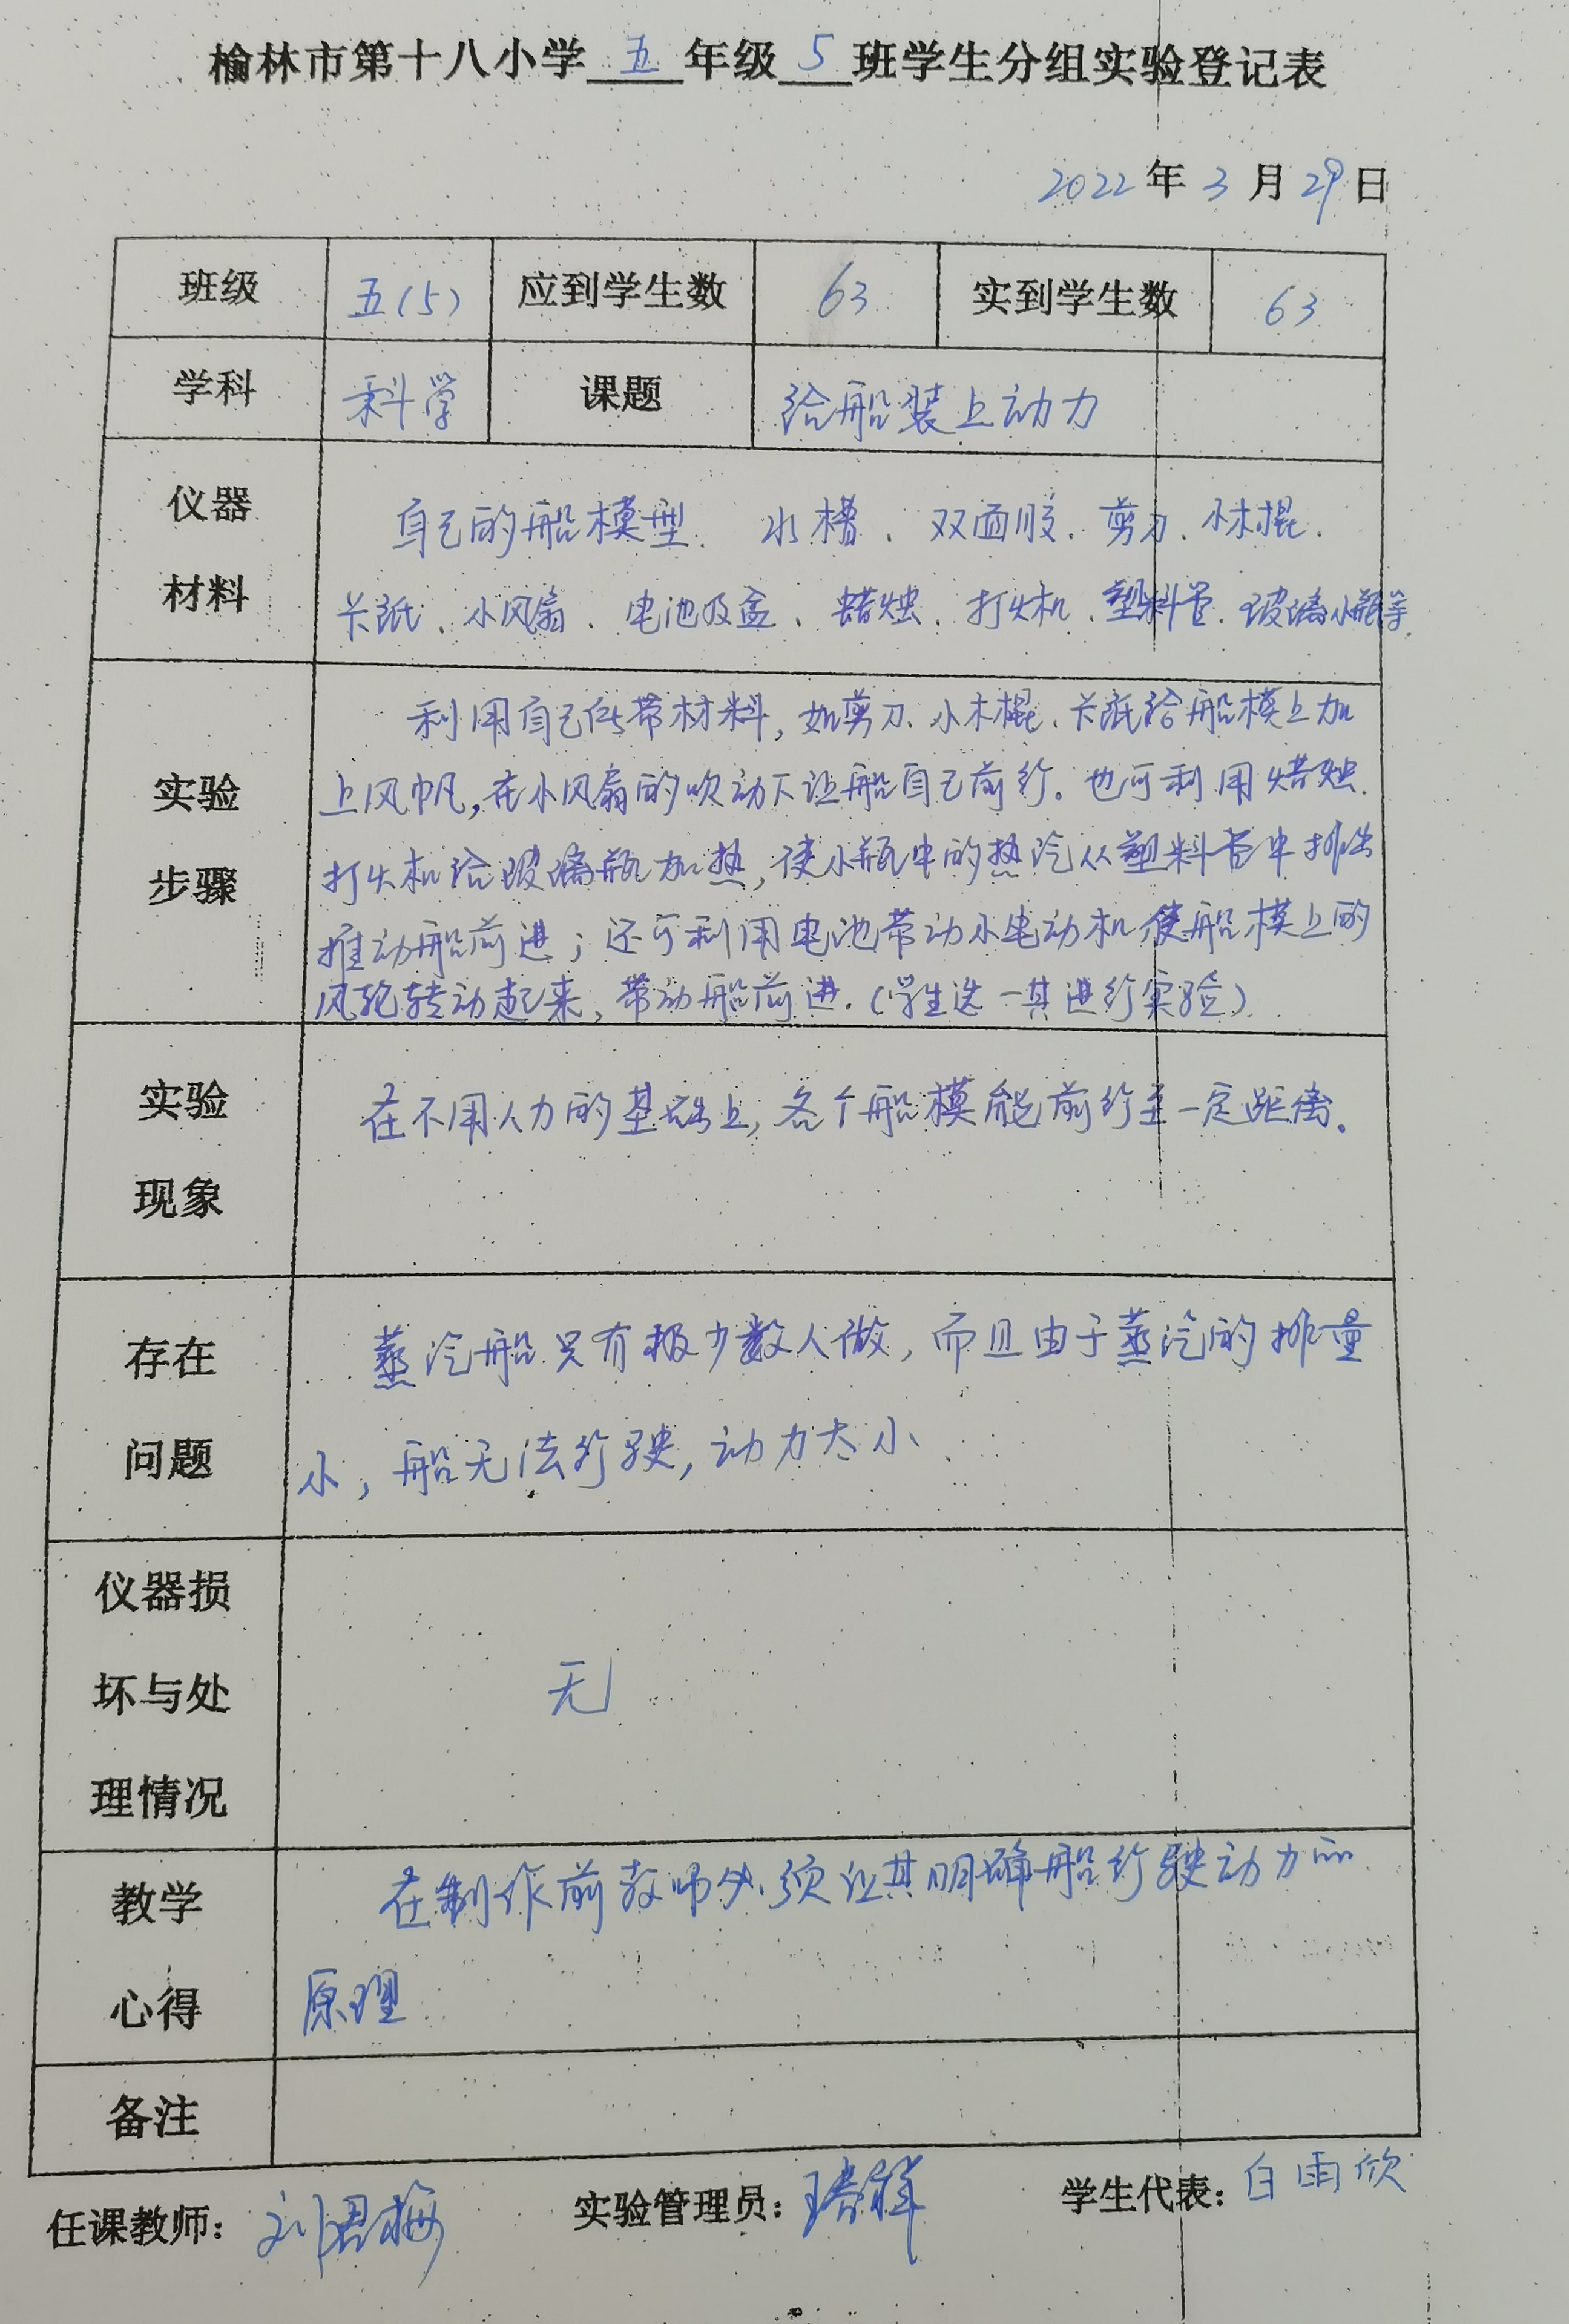 榆林市第十八小学 五 年级 5 班学生分组实验登记表
2022 年 3 月 29 日
班级 五(5) 应到学生数 63 实到学生数 63
学科 科学 课题 给船装上动力
仪器材料
自己的船模型、水槽、双面胶、剪刀、小木棍、
卡纸、小风扇、电池及盒、蜡烛、打火机、塑料管、玻璃小瓶等.
实验步骤
利用自己所带材料,如剪刀、小木棍、卡纸给船模上加
上风帆,在小风扇的吹动下让船自己前行。也可利用蜡烛.
打火机给玻璃瓶加热,使小瓶中的热汽从塑料管中排出
推动船前进;还可利用电池带动小电动机使船模上的
风轮转动起来,带动船前进.(学生选一其进行实验)
实验现象
在不用人力的基础上,各个船模能前行至一定距离。
存在问题
蒸汽船只有极少数人做,而且由于蒸汽的排量
小,船无法行驶,动力太小、
仪器损坏与处理情况
无
教学心得
在制作前教师必须让其明确船行驶动力的
原理
备注
任课教师: 实验管理员: 学生代表: 白雨欣